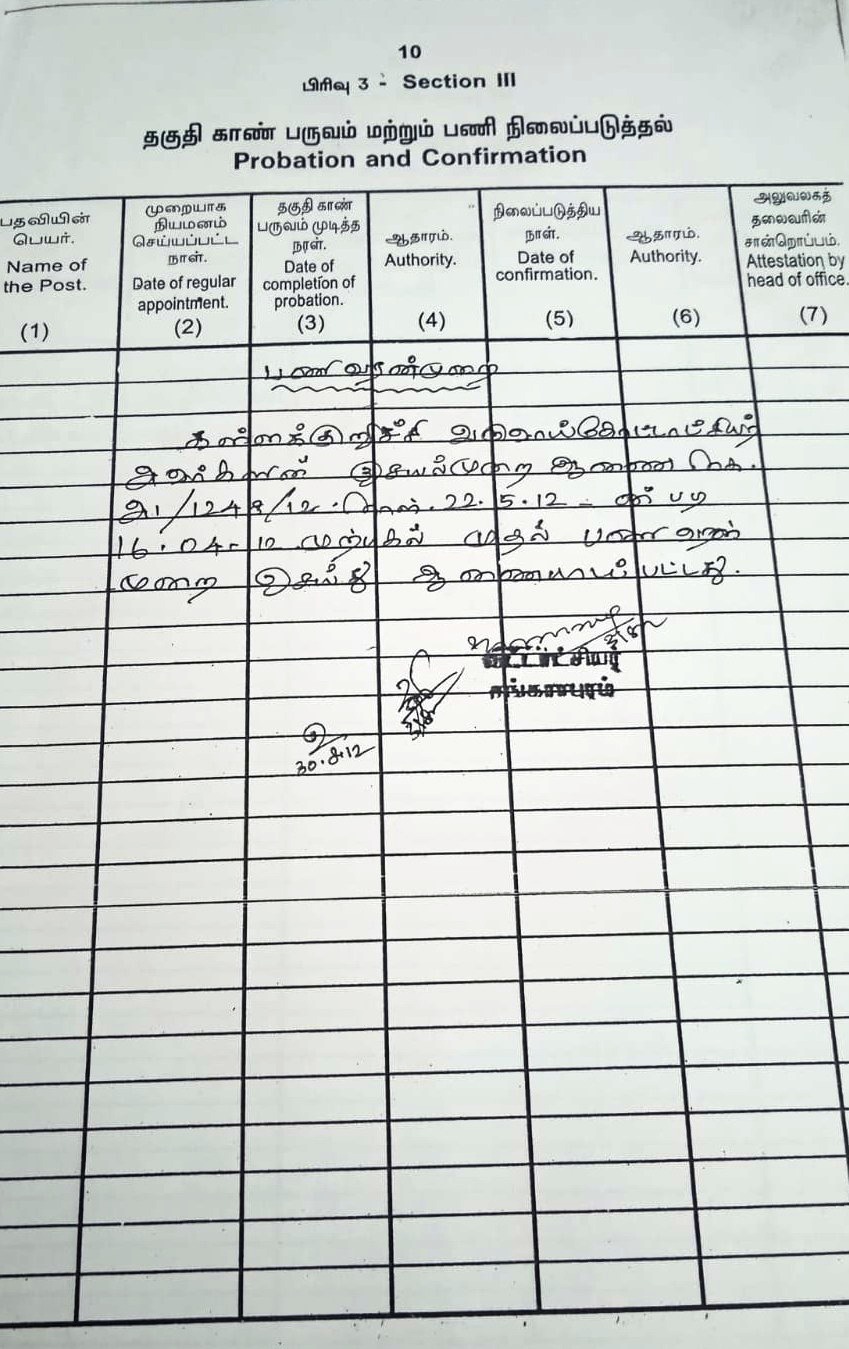 10
பிரிவு 3 - Section III
தகுதி காண் பருவம் மற்றும் பணி நிலைப்படுத்தல்
Probation and Confirmation
பதவியின் பெயர். Name of the Post. (1)
முறையாக நியமனம் செய்யப்பட்ட நாள். Date of regular appointment. (2)
தகுதி காண் பருவம் முடித்த நாள். Date of completion of probation. (3)
ஆதாரம். Authority. (4)
நிலைப்படுத்திய நாள். Date of confirmation. (5)
ஆதாரம். Authority. (6)
அலுவலகத் தலைவரின் சான்றொப்பம். Attestation by head of office. (7)
பணி வரன்முறை
கள்ளக்குறிச்சி வருவாய் கோட்டாட்சியர்
அவர்களின் செயல்முறை ஆணை
அ1/1248/12. நாள். 22.5.12 - ன் படி
16.04.12 முற்பகல் முதல் பணி வரன்
முறை செய்து ஆணையிடப்பட்டது.
வட்டாட்சியர்
சங்கராபுரம்
30.8.12